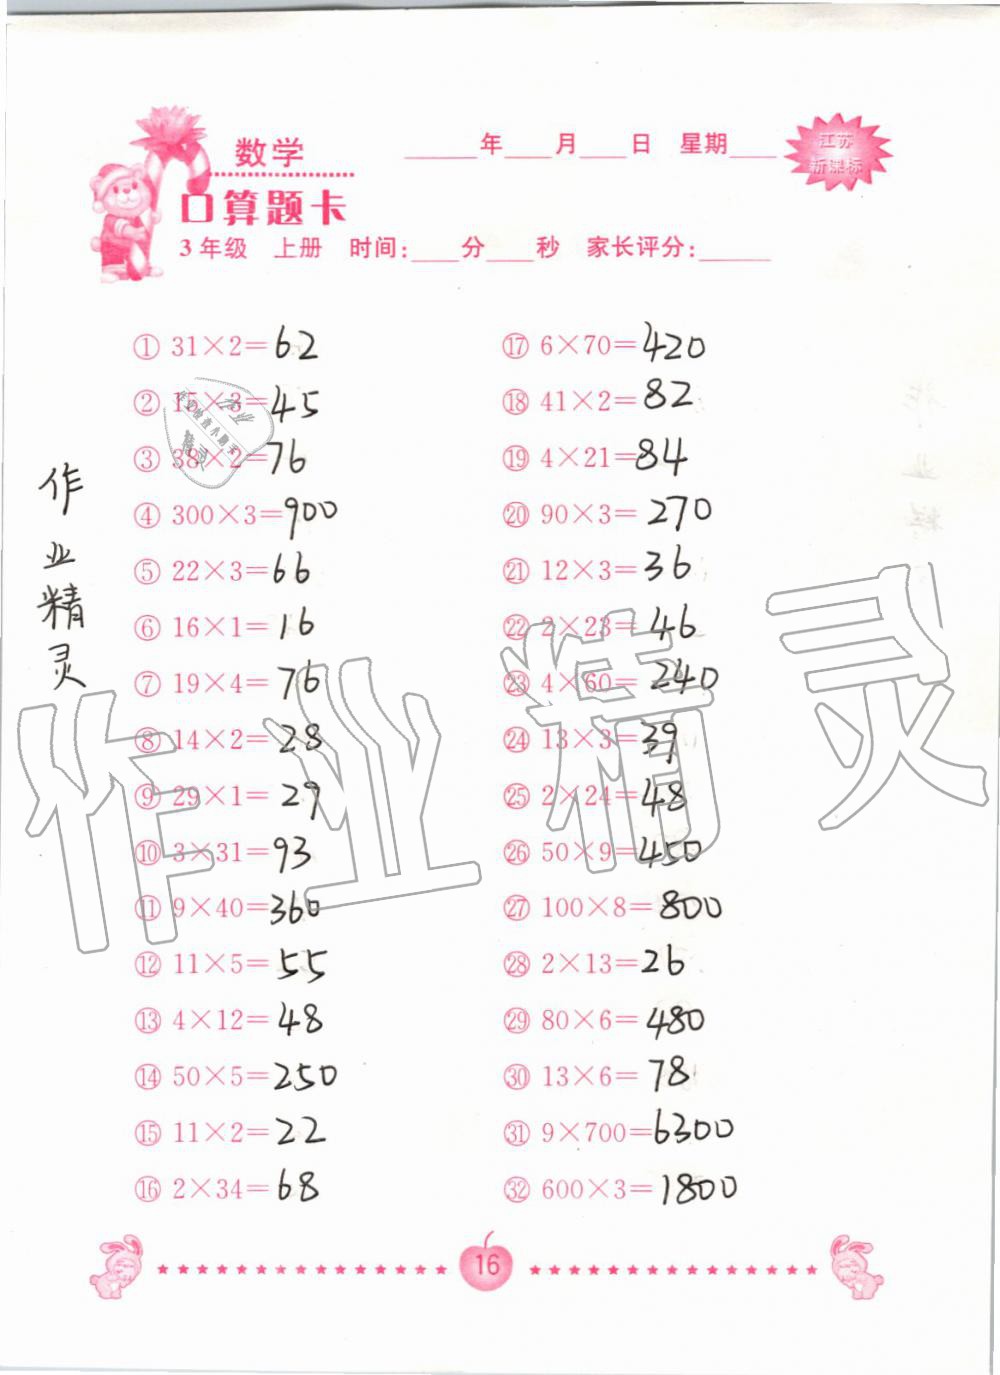 数学
____年____月____日 星期____
江苏
新课标
口算题卡
3年级 上册 时间:____分____秒 家长评分:______
① 31×2=62
② 15×3=45
③ 38×2=76
④ 300×3=900
⑤ 22×3=66
⑥ 16×1=16
⑦ 19×4=76
⑧ 14×2=28
⑨ 29×1=29
⑩ 3×31=93
⑪ 9×40=360
⑫ 11×5=55
⑬ 4×12=48
⑭ 50×5=250
⑮ 11×2=22
⑯ 2×34=68
⑰ 6×70=420
⑱ 41×2=82
⑲ 4×21=84
⑳ 90×3=270
㉑ 12×3=36
㉒ 2×23=46
㉓ 4×60=240
㉔ 13×3=39
㉕ 2×24=48
㉖ 50×9=450
㉗ 100×8=800
㉘ 2×13=26
㉙ 80×6=480
㉚ 13×6=78
㉛ 9×700=6300
㉜ 600×3=1800
作业精灵
作业精灵
16